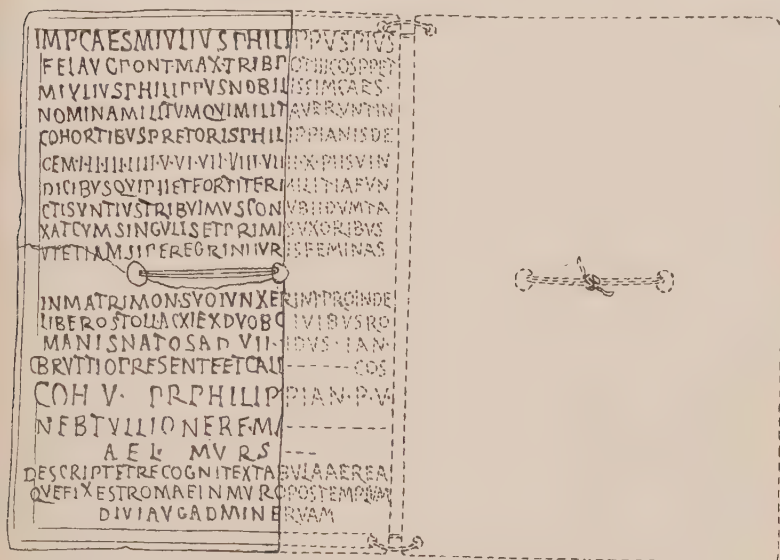 IMPCAESMIVLIVSPHILIPPVSPIVS
FELAVGPONT·MAX·TRIBPOTIIICOSPPET
MIVLIVSPHILIPPVSNOBILISSIMCAES·
NOMINAMILITVMQVIMILITAVERVNTIN
COHORTIBVSPRETORISPHILIPPIANISDE
CEM·I·II·III·IIII·V·VI·VII·VIII·VIIII·X·PIISVIN
DICIBVSQVIPIIETFORTITERMILITIAFVN
CTISVNTIVSTRIBVIMVSCONVBIIDVMTA
XATCVMSINGVLISETPRIMISVXORIBVS
VTETIAMSIPEREGRINIIVRISFEMINAS
INMATRIMON·SVOIVNXERINTPROINDE
LIBEROSTOLLACXIEXDVOBCIVIBVSRO
MANISNATOSAD VII·IDVS·IAN·
CBRVTTIOPRESENTEETCALL------COS
COH V· PRPHILIPPIAN·P·V·
NEBTVLLIONEREM
AEL· MVRS ---
DESCRIPTETRECOGNITEXTABVLAAEREA
QVEFIXESTROMAEINMVROPOSTEMPLVM
DIVIAVGADMINERVAM